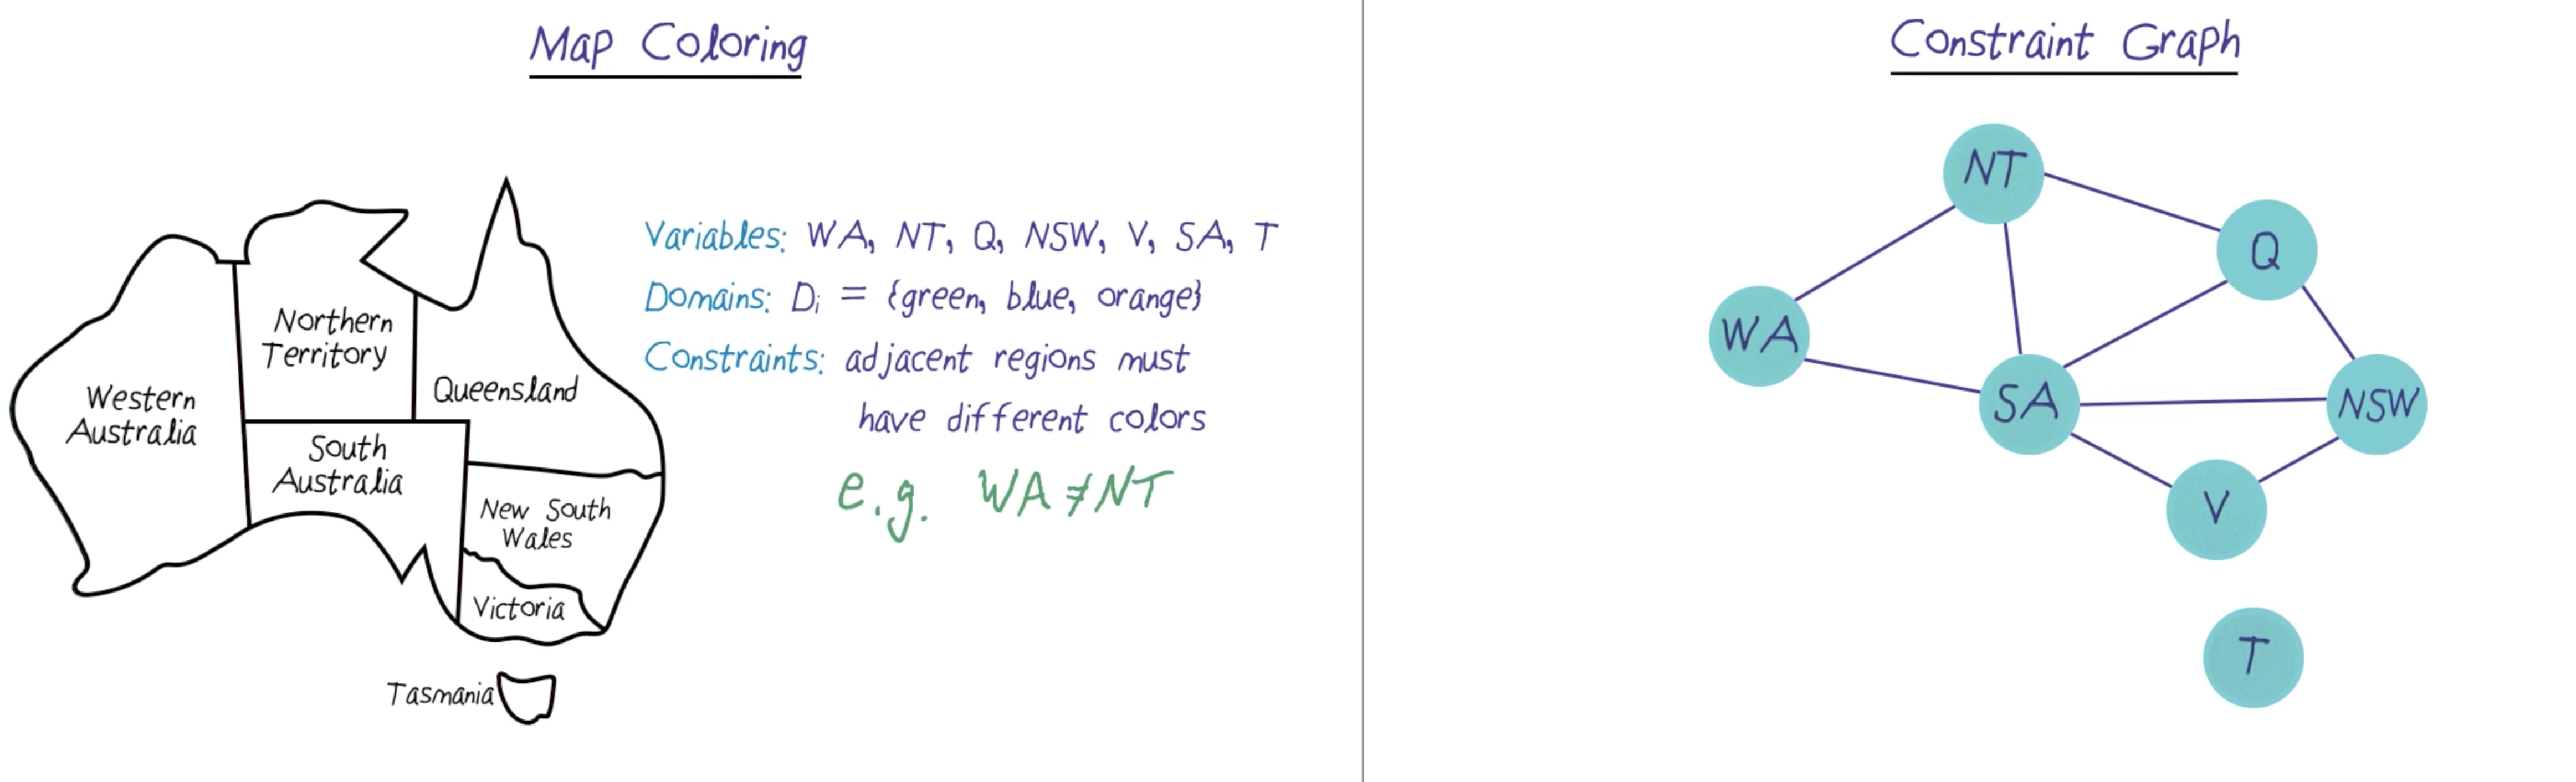 Map Coloring
Western
Australia
Northern
Territory
Queensland
South
Australia
New South
Wales
Victoria
Tasmania
Variables: WA, NT, Q, NSW, V, SA, T
Domains: Di = {green, blue, orange}
Constraints: adjacent regions must
have different colors
e.g. WA ≠ NT
Constraint Graph
NT
Q
WA
SA
NSW
V
T